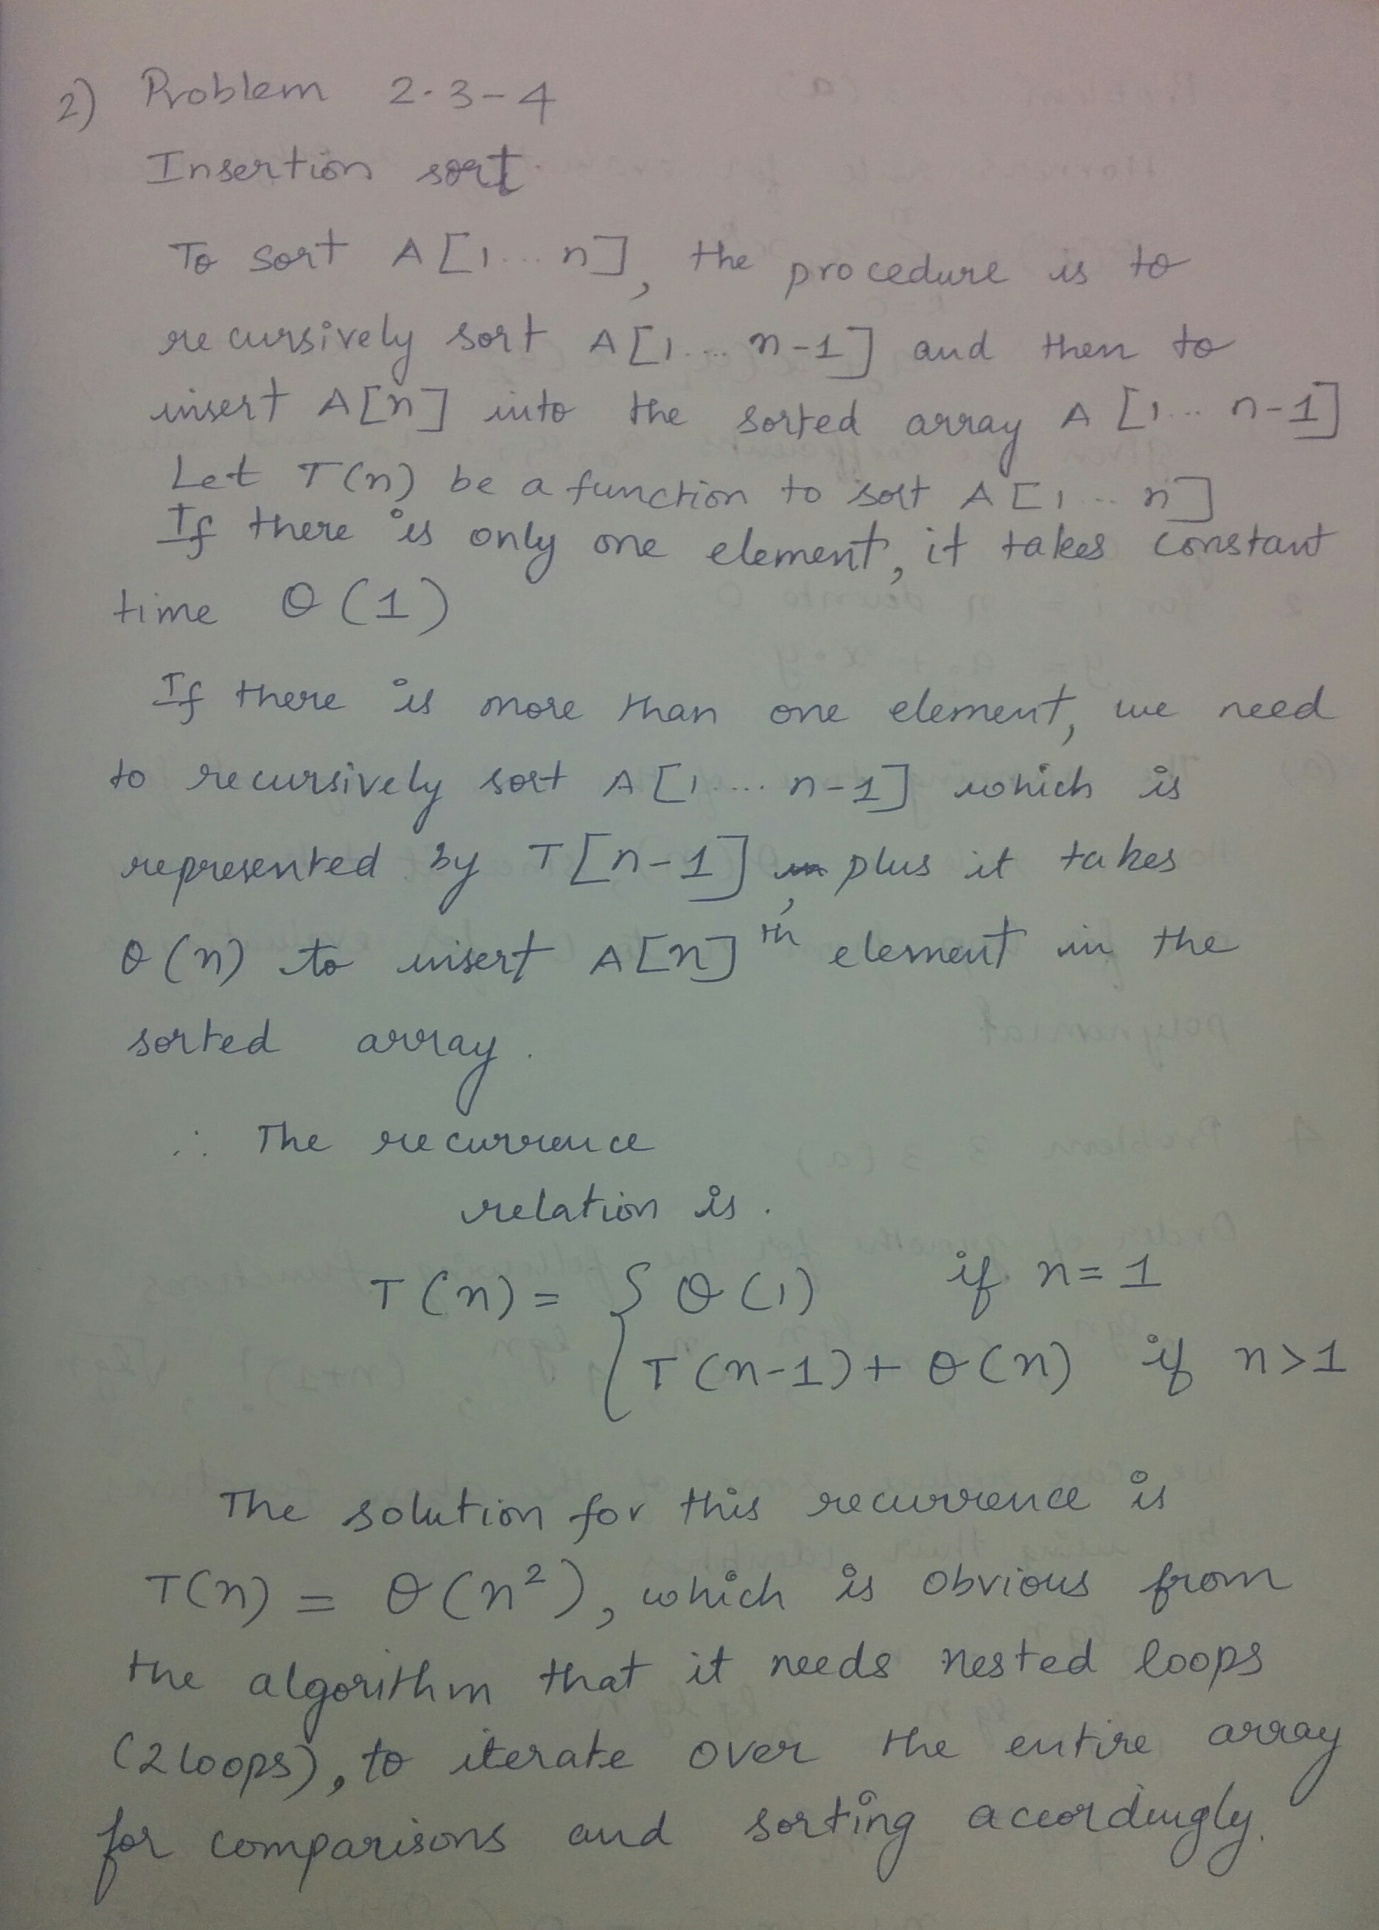 2) Problem 2.3-4
Insertion sort.
To sort A[1...n], the procedure is to
recursively sort A[1...n-1] and then to
insert A[n] into the sorted array A[1...n-1]
Let T(n) be a function to sort A[1...n]
If there is only one element, it takes constant
time θ(1)
If there is more than one element, we need
to recursively sort A[1....n-1] which is
represented by T[n-1], plus it takes
θ(n) to insert A[n]th element in the
sorted array.
∴ The recurrence
relation is.
T(n) = { θ(1) if n=1
T(n-1)+θ(n) if n>1
The solution for this recurrence is
T(n) = θ(n²), which is obvious from
the algorithm that it needs nested loops
(2 loops), to iterate over the entire array
for comparisons and sorting accordingly.